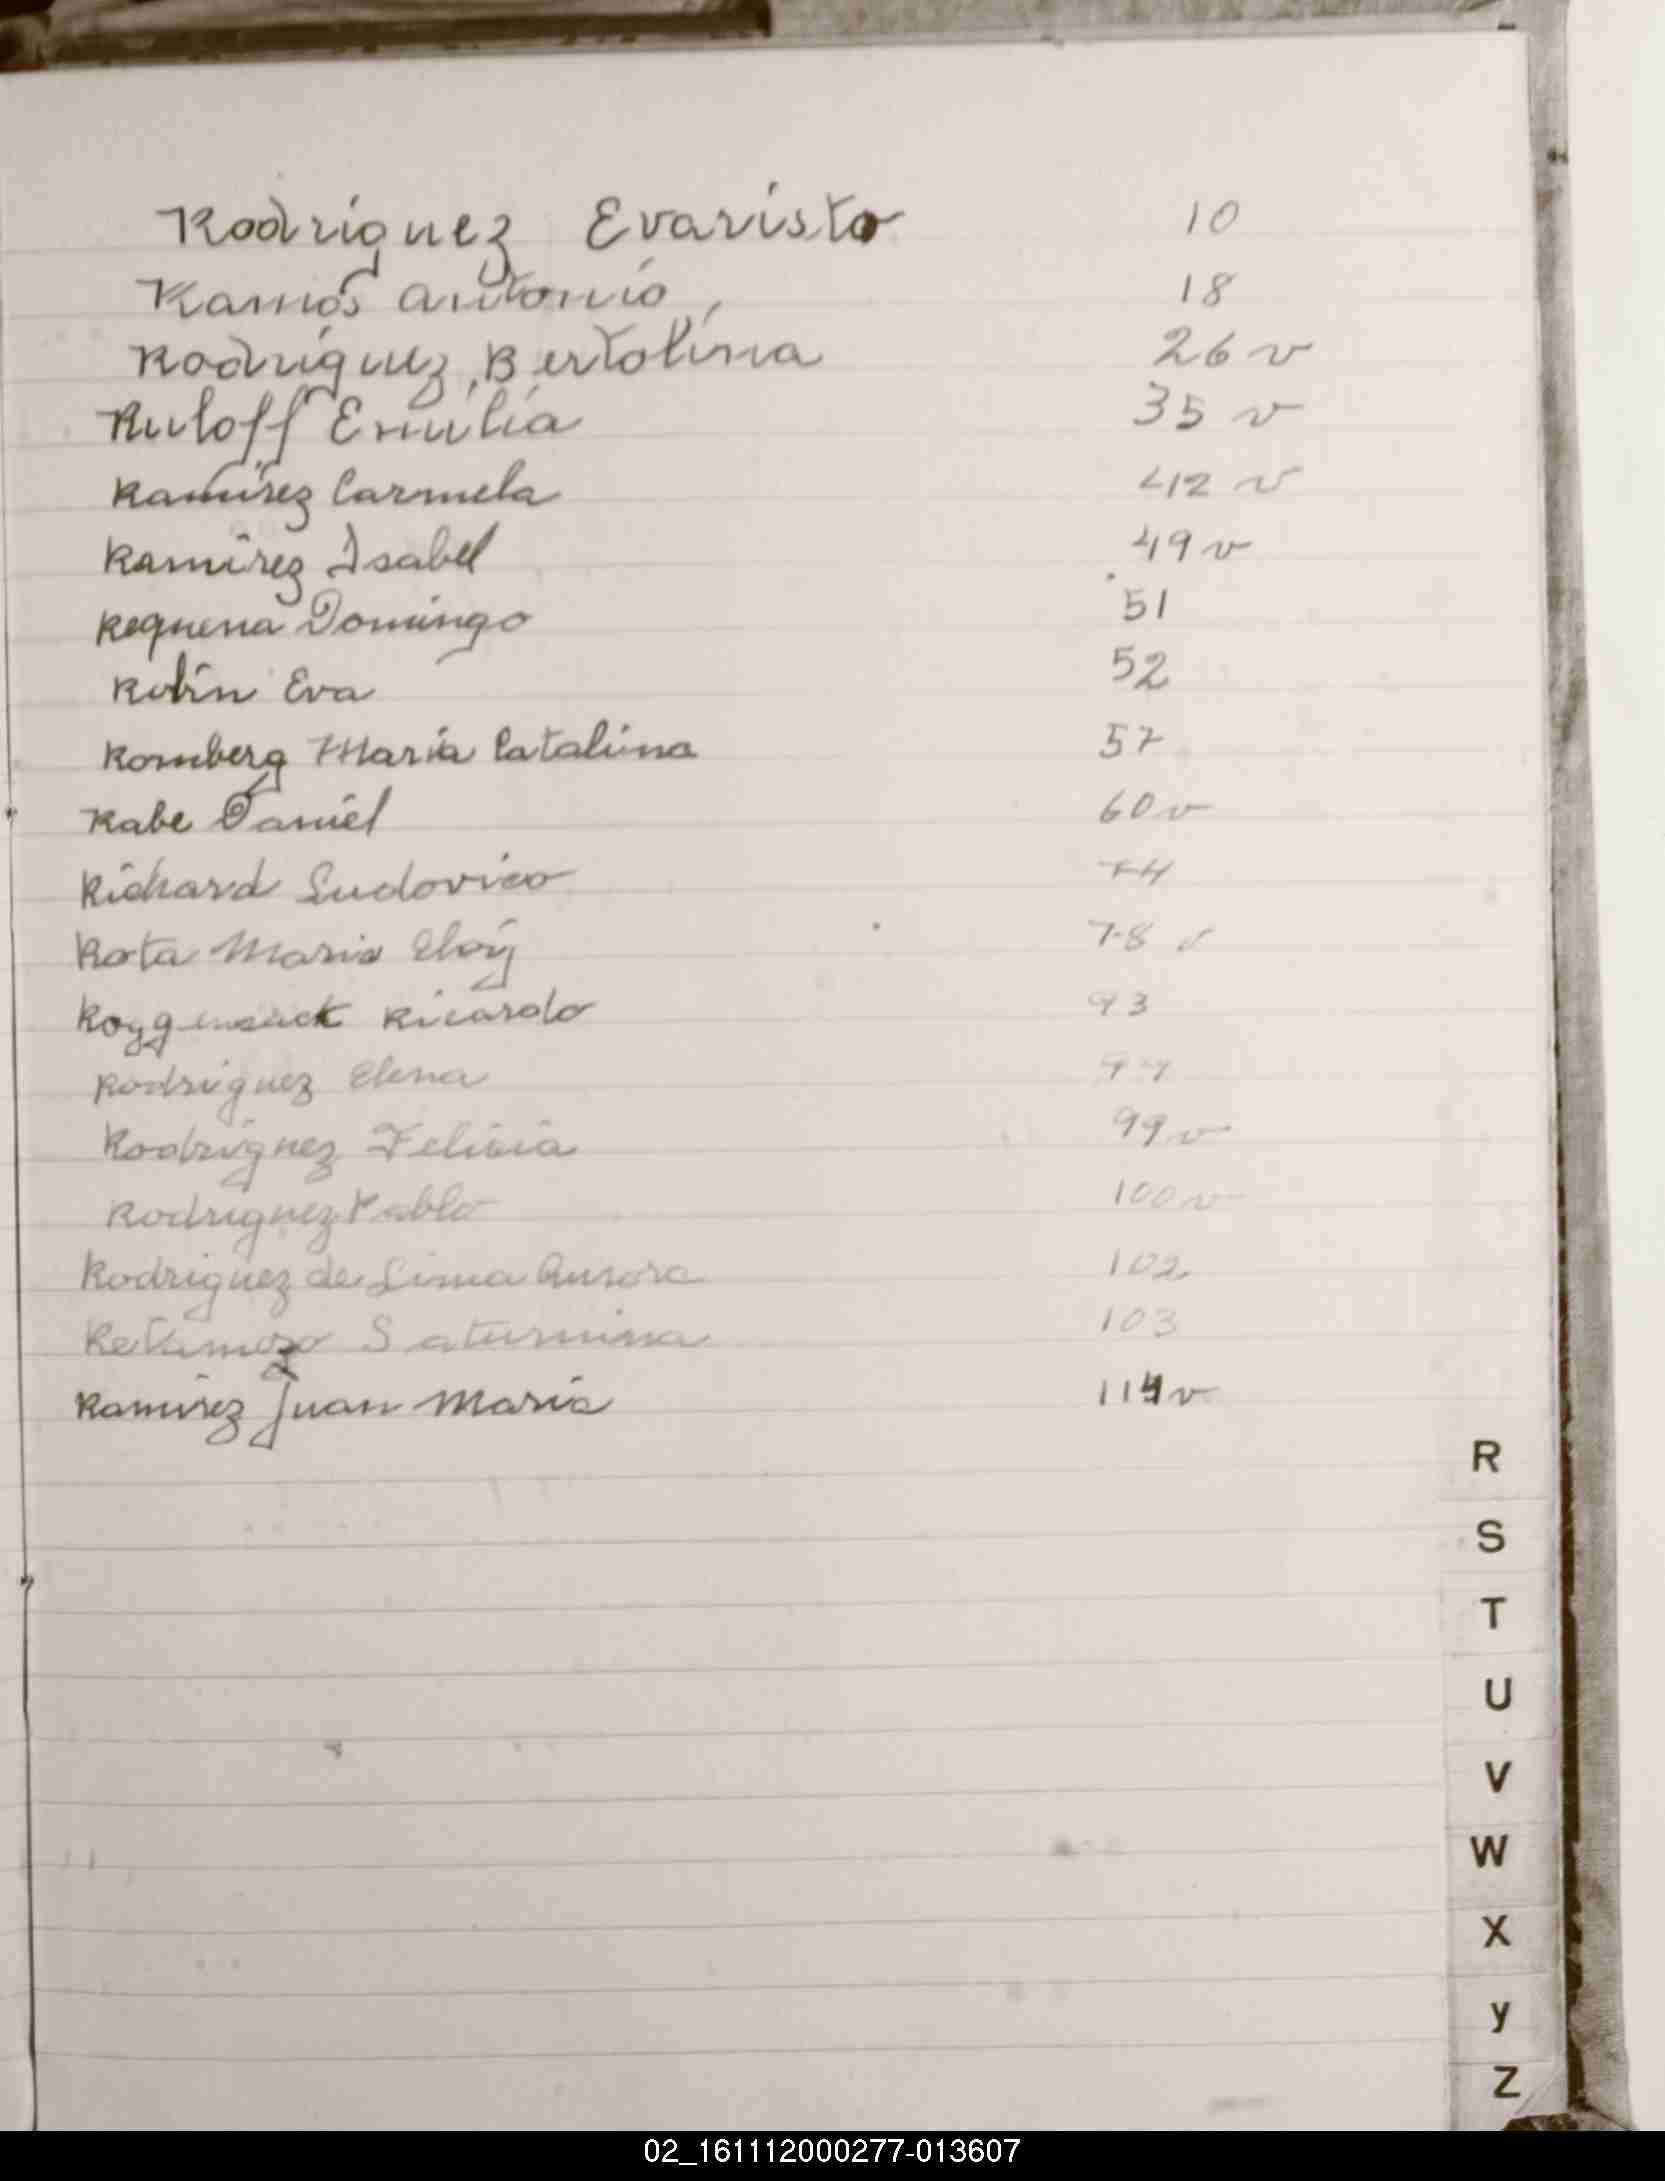 Rodriguez Evaristo 10
Ramos Antonio, 18
Rodriguez, Bertolina 26 v
Ruloff Emilia 35 v
Ramirez Carmela 42 v
Ramirez Isabel 49 v
Requena Domingo 51
Rolin Eva 52
Romberg Maria Catalina 57
Rabe Daniel 60 v
Richard Ludovico 74
Rota Maria Eloij 78 v
Ricardo 93
Rodriguez Elena
Rodriguez Felicia 99 v
Rodriguez Pablo 100 v
Rodriguez de Lima Aurora 102
Retamozo Saturnina 103
Ramirez Juan Maria 114 v
R
S
T
U
V
W
X
y
Z
02_161112000277-013607